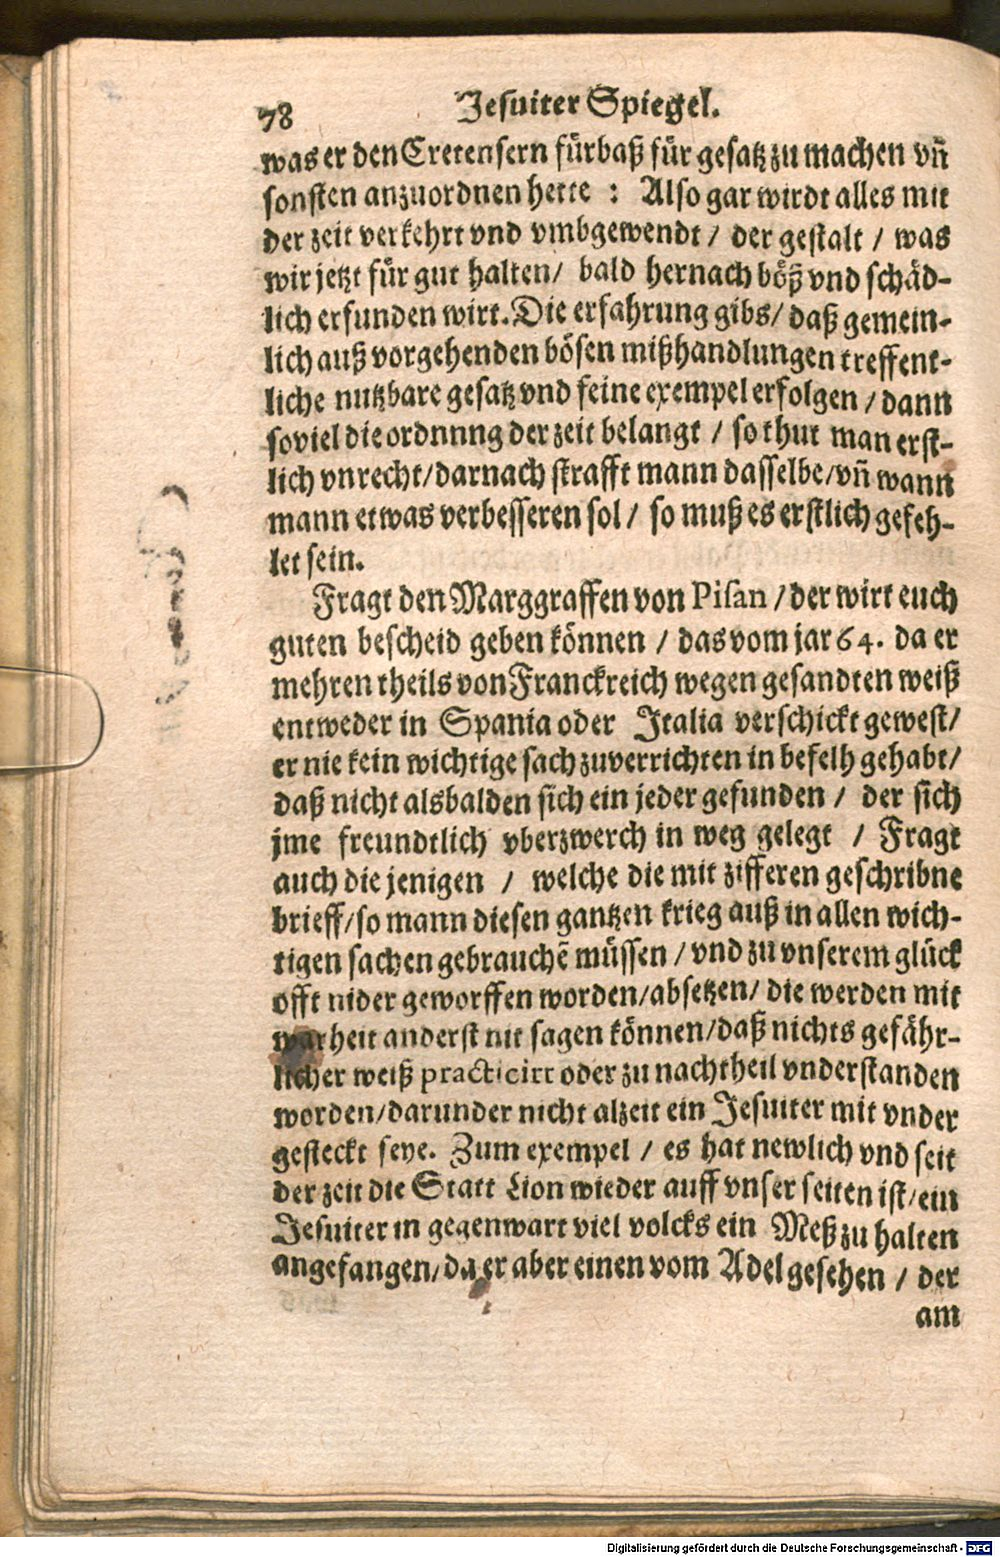 78 Jesuiter Spiegel.
was er den Cretensern fürbaß für gesatz zu machen vñ
sonsten anzuordnen hette : Also gar wirdt alles mit
der zeit verkehrt vnd vmbgewendt / der gestalt / was
wir jetzt für gut halten / bald hernach böß vnd schäd-
lich erfunden wirt. Die erfahrung gibs / daß gemein-
lich auß vorgehenden bösen mißhandlungen treffent-
liche nutzbare gesatz vnd feine exempel erfolgen / dann
soviel die ordnnng der zeit belangt / so thut man erst-
lich vnrecht / darnach strafft mann dasselbe / vñ wann
mann etwas verbesseren sol / so muß es erstlich gefeh-
let sein.
Fragt den Marggraffen von Pisan / der wirt euch
guten bescheid geben können / das vom jar 64. da er
mehren theils von Franckreich wegen gesandten weiß
entweder in Spania oder Italia verschickt gewest /
er nie kein wichtige sach zuverrichten in befelh gehabt /
daß nicht alsbalden sich ein jeder gefunden / der sich
jme freundtlich vberzwerch in weg gelegt / Fragt
auch die jenigen / welche die mit zifferen geschribne
brieff / so mann diesen gantzen krieg auß in allen wich-
tigen sachen gebrauchẽ müssen / vnd zu vnserem glück
offt nider geworffen worden / absetzen / die werden mit
warheit anderst nit sagen können / daß nichts gefähr-
licher weiß practicirt oder zu nachtheil vnderstanden
worden / darunder nicht alzeit ein Jesuiter mit vnder
gesteckt seye. Zum exempel / es hat newlich vnd seit
der zeit die Statt Lion wieder auff vnser seiten ist / ein
Jesuiter in gegenwart viel volcks ein Meß zu halten
angefangen / da er aber einen vom Adel gesehen / der
am
Digitalisierung gefördert durch die Deutsche Forschungsgemeinschaft - DFG